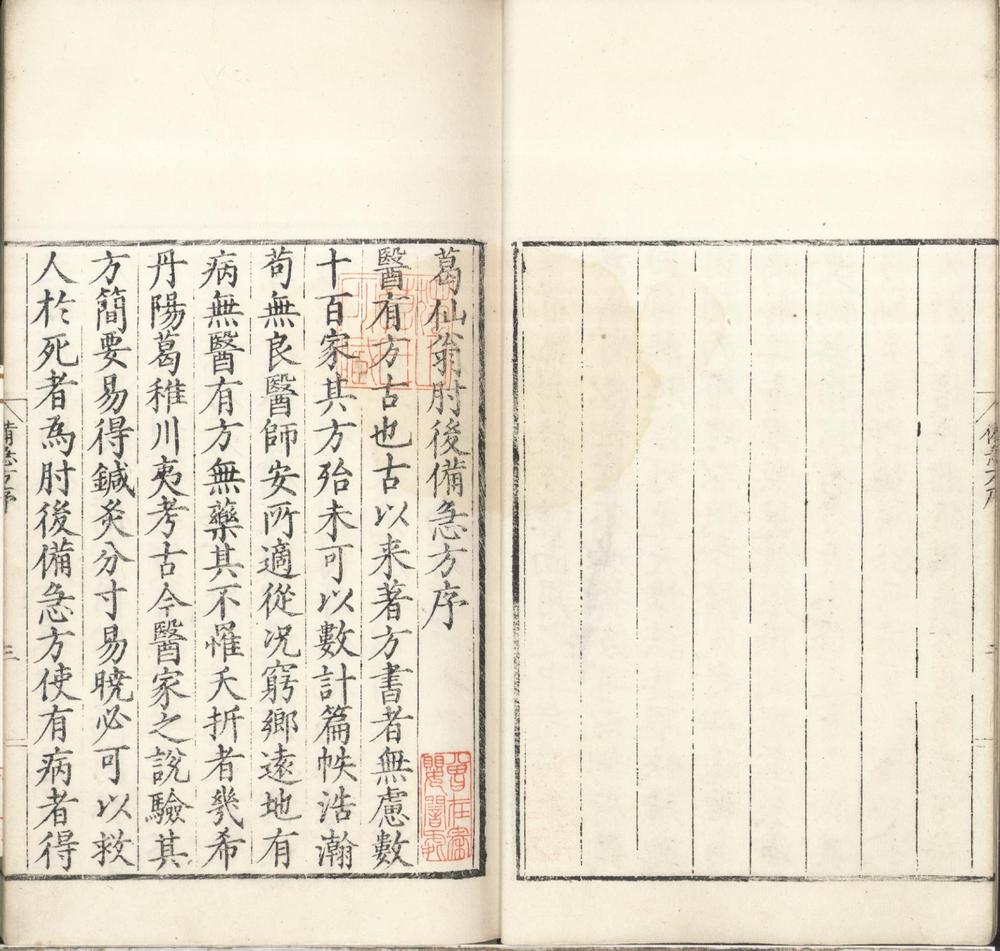 葛仙翁肘後備急方序
醫有方古也古以来著方書者無慮數
十百家其方殆未可以數計篇帙浩瀚
苟無良醫師安所適從况窮鄉遠地有
病無醫有方無藥其不罹夭折者幾希
丹陽葛稚川夷考古今醫家之說驗其
方簡要易得鍼灸分寸易曉必可以救
人於死者為肘後備急方使有病者得
備急方序
三